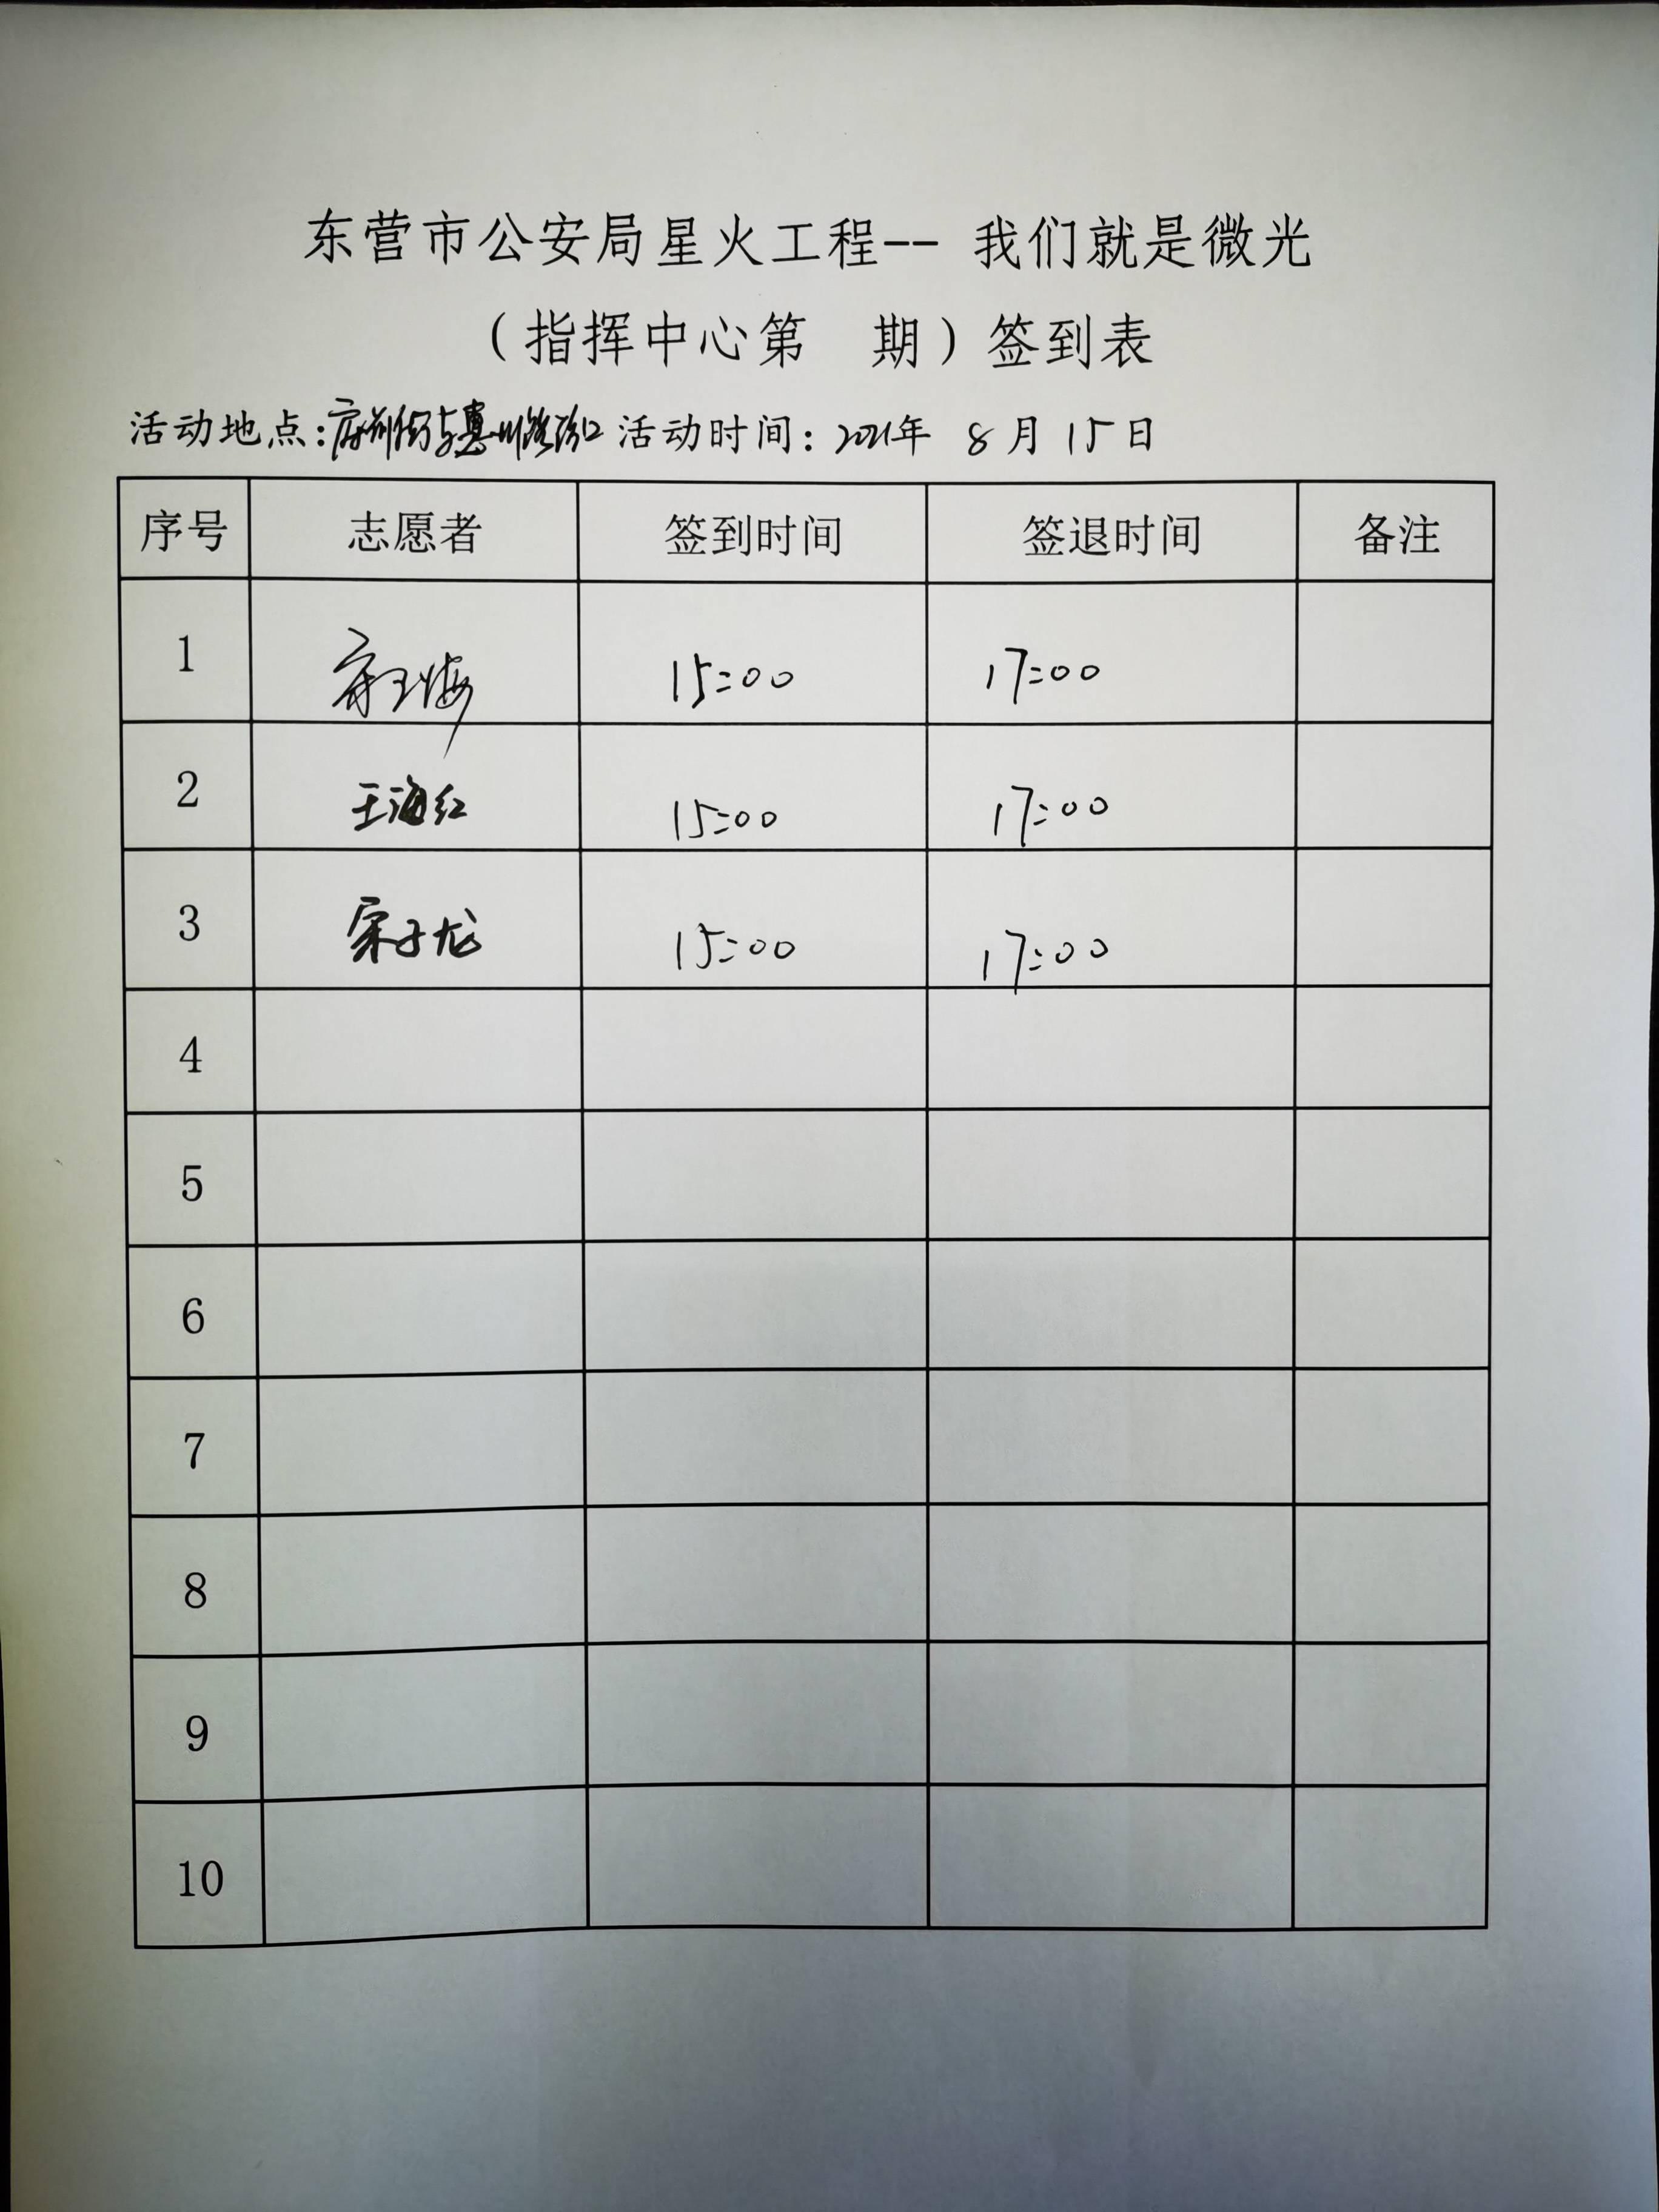 东营市公安局星火工程-- 我们就是微光
(指挥中心第 期)签到表
活动地点:府前街与惠州路路口 活动时间: 2021年 8月15日
序号 志愿者 签到时间 签退时间 备注
1 15:00 17:00
2 王海红 15:00 17:00
3 宋子龙 15:00 17:00
4
5
6
7
8
9
10